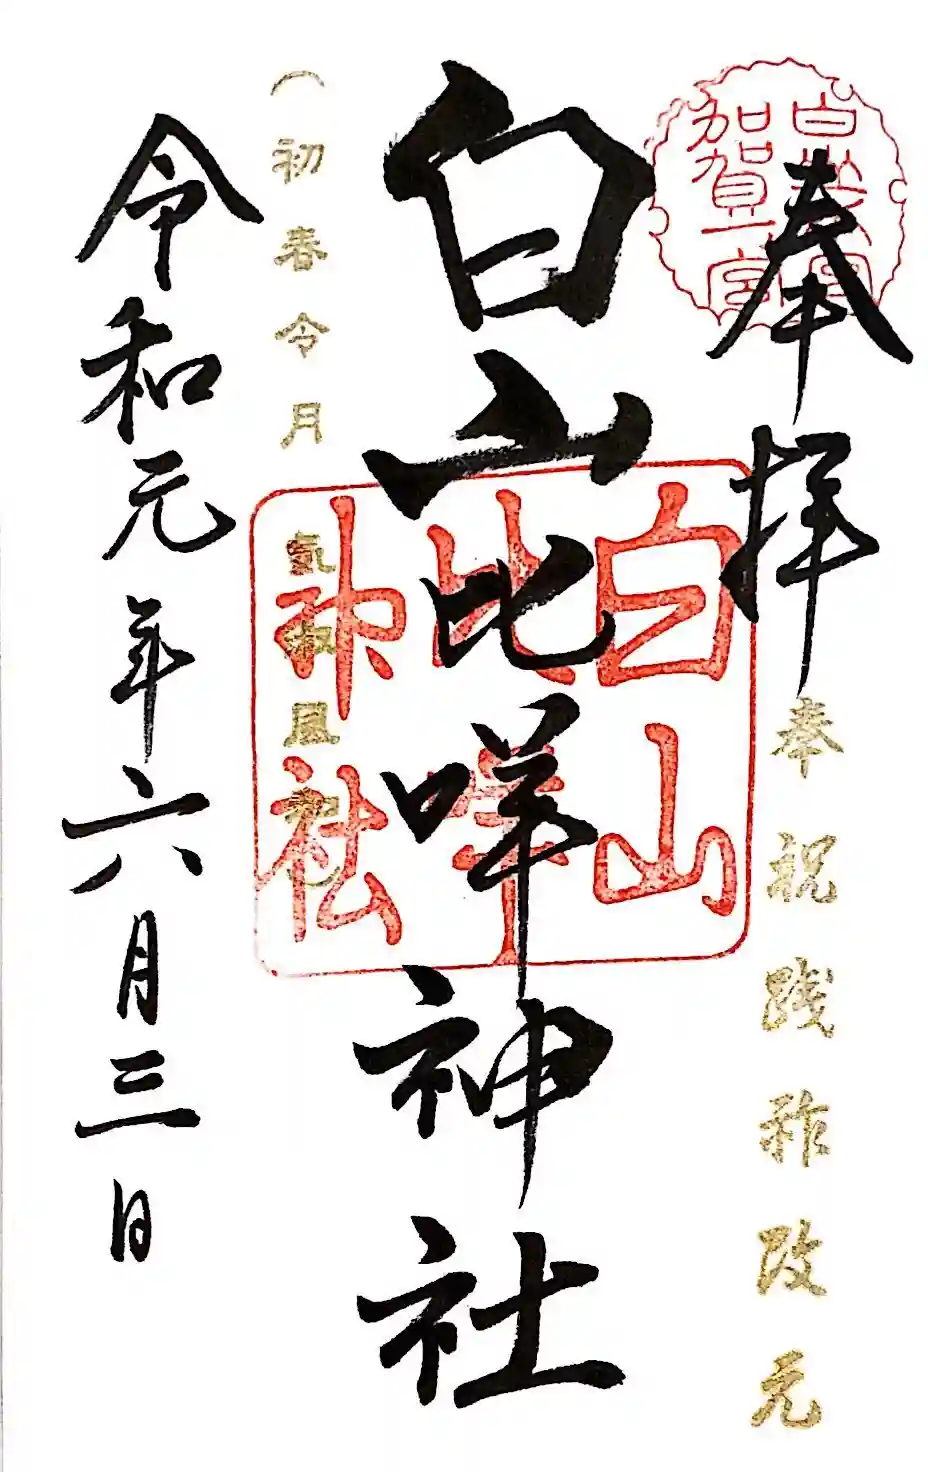 奉拝
加賀一宮
奉祝践祚改元
白山比咩神社
白山
比咩
神社
(初春令月 氣淑風和)
令和元年六月三日